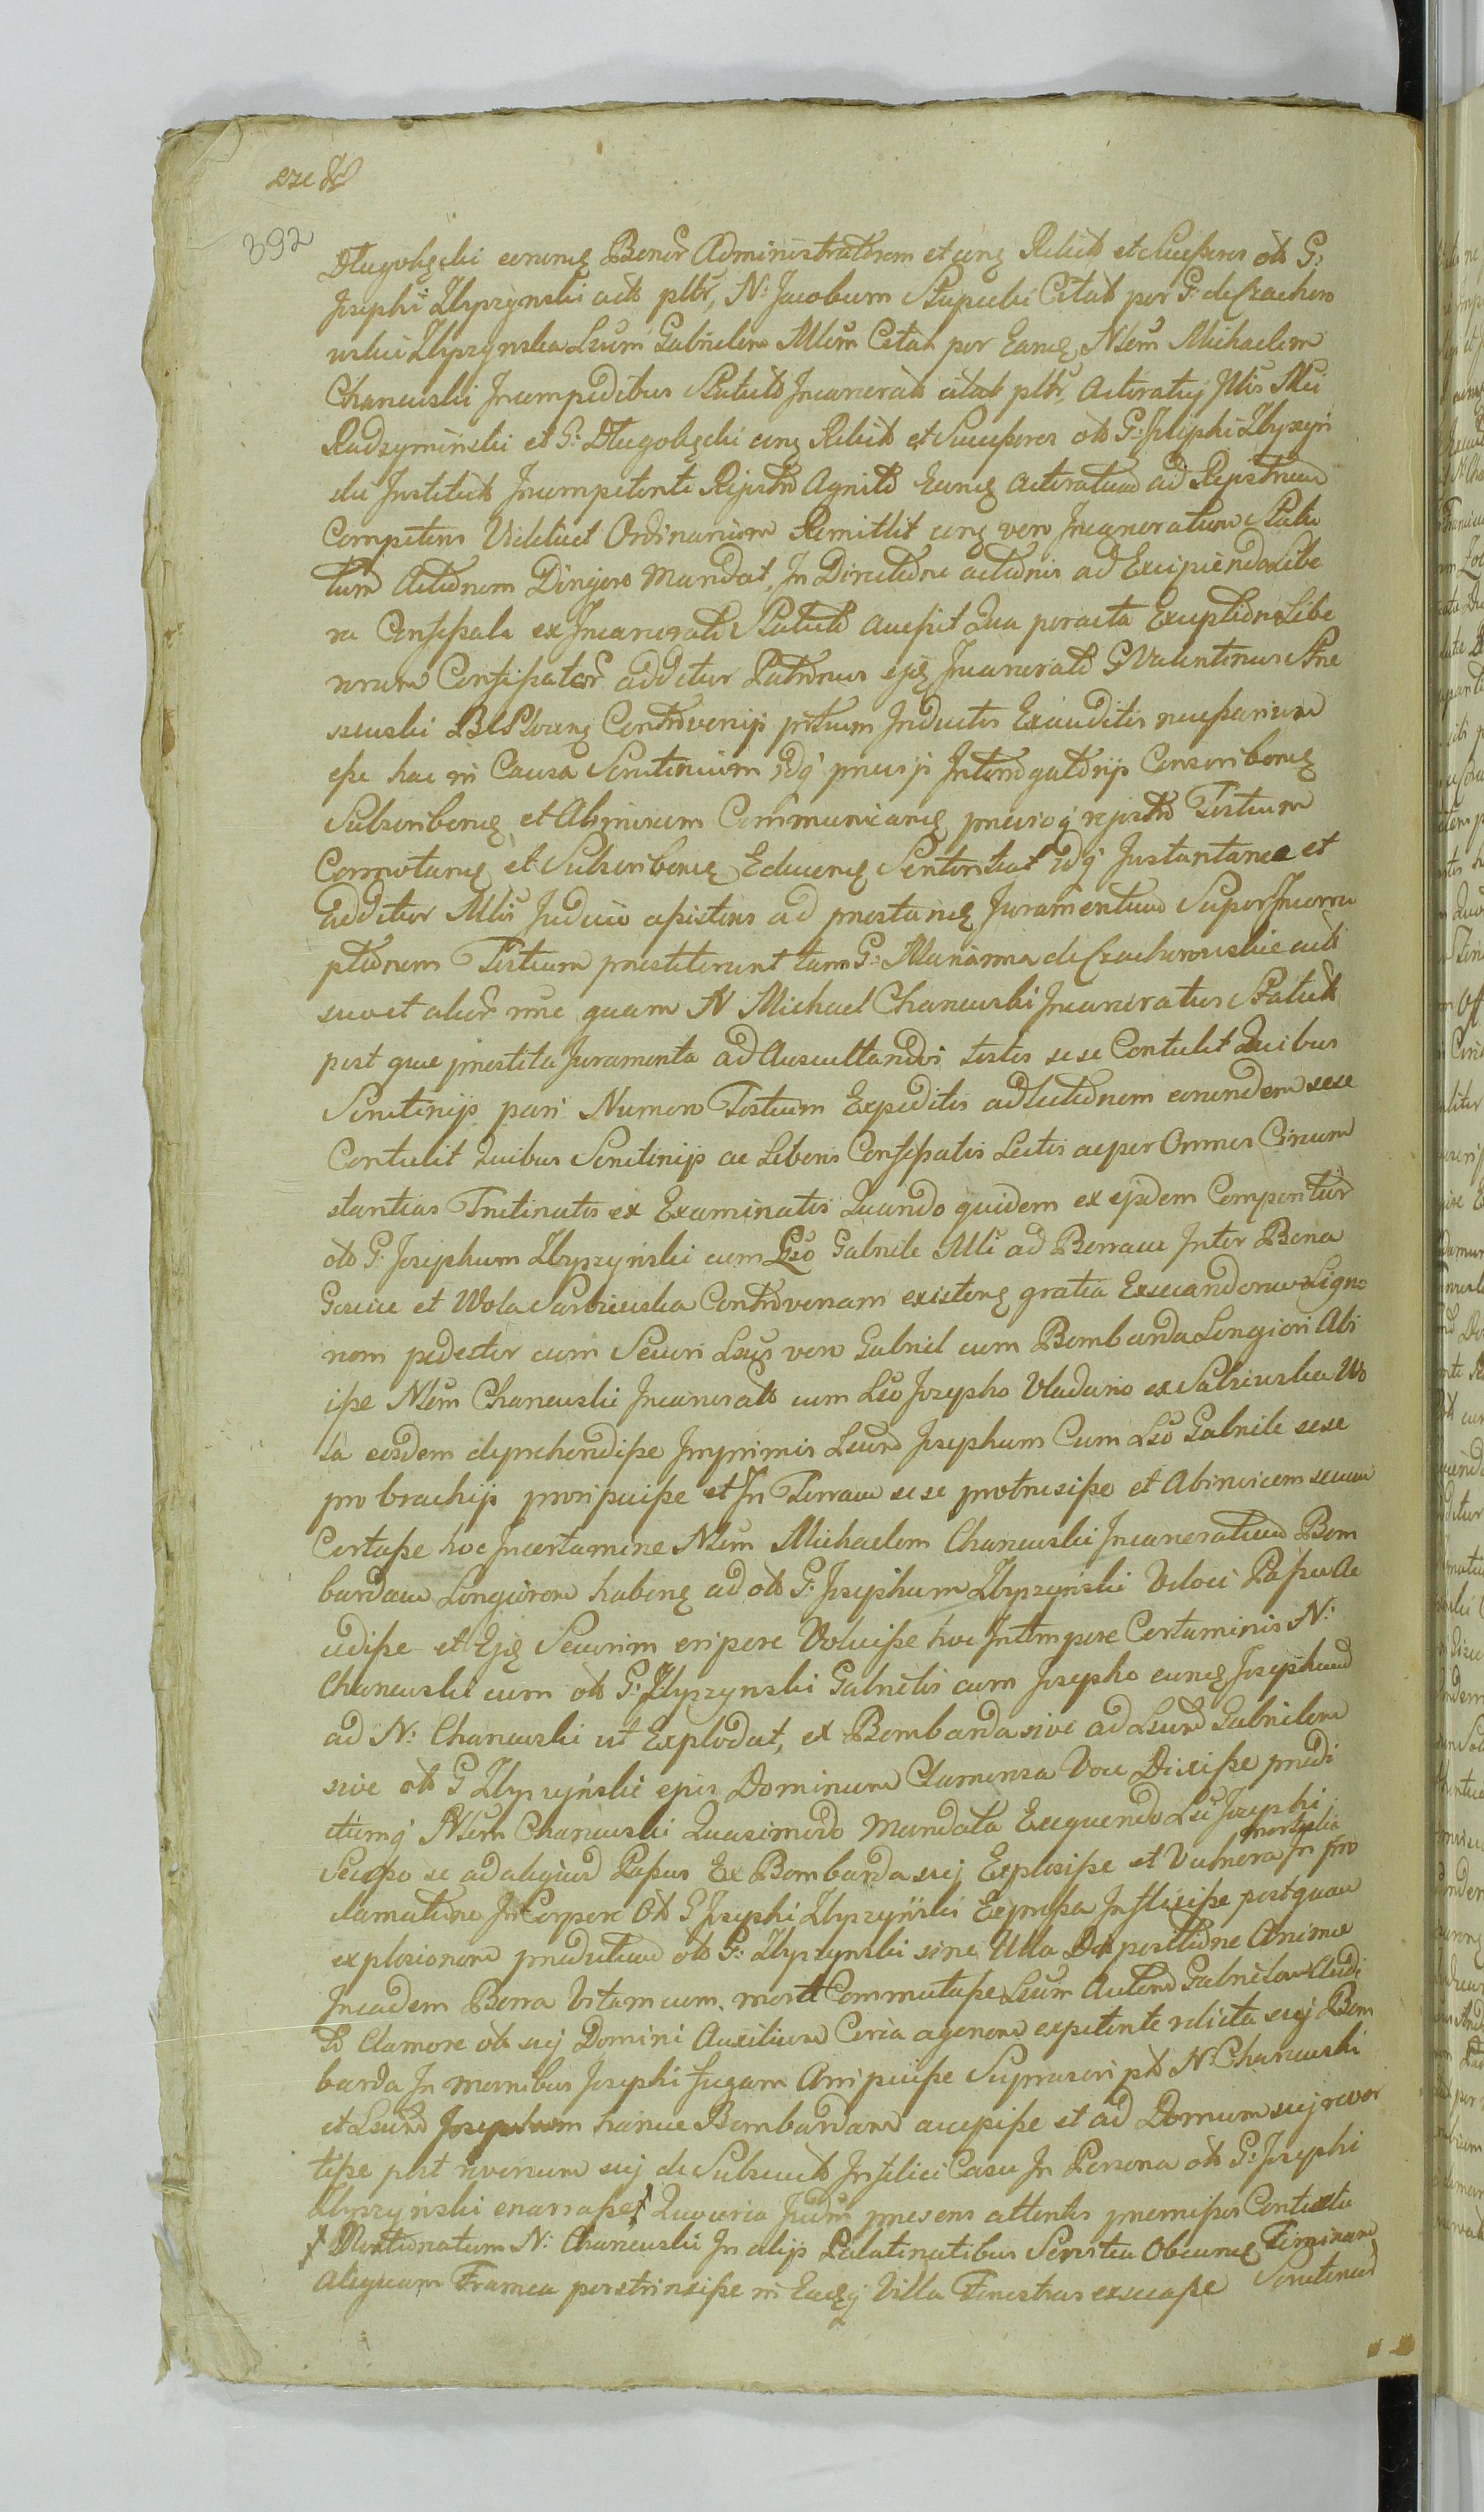 392
Długołęcki eorumq Bonor Administratorem et cunq Relict et Successores olt G:
Josephi Zbyszynski act pltr, N: Jacobum Słupecki Citat per G: de Czachorow
uskie Zbyszynska Lsum Gabrielem Mlem Citat per Eamq Nlem Michaelem
Chanewski Incompedibus Statut Incarcerat citat pltr, Actoratuj Mlis Mci
Radzyminski et G: Długołęcki cunq Relict et Successores olt G: Josephi Zbyszyn
ski Institut Incompetenti Rejestro Agnito Eumq Actoratum ad Rejestrum
Competens Videlicet Ordinarium Remittit cunq vero Incarceratum Statu
tum Actionem Dirigere Mandat, In Directione actionis ad Excipiendo Libe
ra Confessata ex Incarcerato Statuto accessit Qua peracta Exceptione Libe
rorum Confessator additur Patronus ejq Incarcerato G Valentinus
Controversijs prtium Inductis Exauditis necessarium
esse hac in Causa Scrutinium idq prievijs Interrogatorijs Conscribenq
Subscribenq et Abinvicem Communicanq previoq rejestro Testium
Connotanq et Subscribenq Educenq Sententiat idq Instantanee et
additur Mlis Judicio assistens ad prestanq Juramentum Super Incorru
ptionem Testium prestiterunt tam G: Marianna de Czachorowskie acti
suo et alior nne quam N Michael Chanewski Incarceratus Statut
post que prestita Juramenta ad Auscultandos testes sese Contulit Quibus
Scrutinijs pari Numero Testium Expeditis ad lectionem eorundem sese
Contulit Quibus Scrutinijs ac Liberis Confessatis Lectis ac per Omnes Circum
stantias Trutinatis ex Examinatis Quando quidem ex ejsdem Comperitur
olt G: Josephum Zbyszyński cum Lso Gabriele Mli ad Borram Inter Bona
Gocice et Wola Sarbiewska Controversam existenq gratia Exsecandorum Ligno
rum pedester cum Securi Lsus vero Gabriel cum Bombarda Longiori Abi
ipse Nlem Chanewski Incarcerato cum Lso Josepho Vladario ex Sarbiewska Wo
la eosdem deprehendisse Imprimis Lsum Josephum Cum Lso Gabriele sese
pro brachijs proripuisse et In Terram sese protrusisse et Abinvicem secum
Certasse hoc Incertamine Nlem Michaelem Chanewski Incarceratum Bom
bardam Longiorem habenq ad olt G: Josephum Zbyszyński Veloci Passu Ac
cedisse et Ejq Securim eripere Voluisse hoc Intempore Certaminis N:
Chanewski cum olt G: Zbyszynski Gabrielis cum Josepho eunq Josephum
ad N: Chanewski ut Explodat, ex Bombarda sive ad Lsum Gabrielem
sive olt G Zbyszyńskie ejus Dominum Clamorosa Voce Dixisse predi
ctumq Nlem Chanewski Quasimodo Mandata Exequendo Lsi Josephi
Secesso se ad aliquod Passus Ex Bombarda suej Explosisse et Vulnera mortalia In pro
clamatione In Corpore Olt G Josephi Zbyszyński Expressa Inflixisse postquam
explosionem predictum olt G: Zbyszynski sine Ulla Dispositione Anime
Ineadem Borra Vitam cum morte Commutasse Lsum Autem Gabrielem Audi
to Clamore olt suj Domini Auxilium Circa agonem expetente relicta suej Bom
barda In manibus Josephi fugam Arripuisse Suprascript N: Chanewski
et Lsum Josephum hancce Bombardam accepisse et ad Domum suej rever
tisse post reversum suj de Subsecut Infelici Casu In Persona olt G: Josephi
Zbyszyński enarrasse Quocirca Judm presens attentis premissis Contexta
Mentionatum N: Chanewski In alijs Palatinatibus Servitia Obeunq Feminam
aliquam Framea perstrinxisse in Eadq Villa Fenestras exsecasse Scrutinio